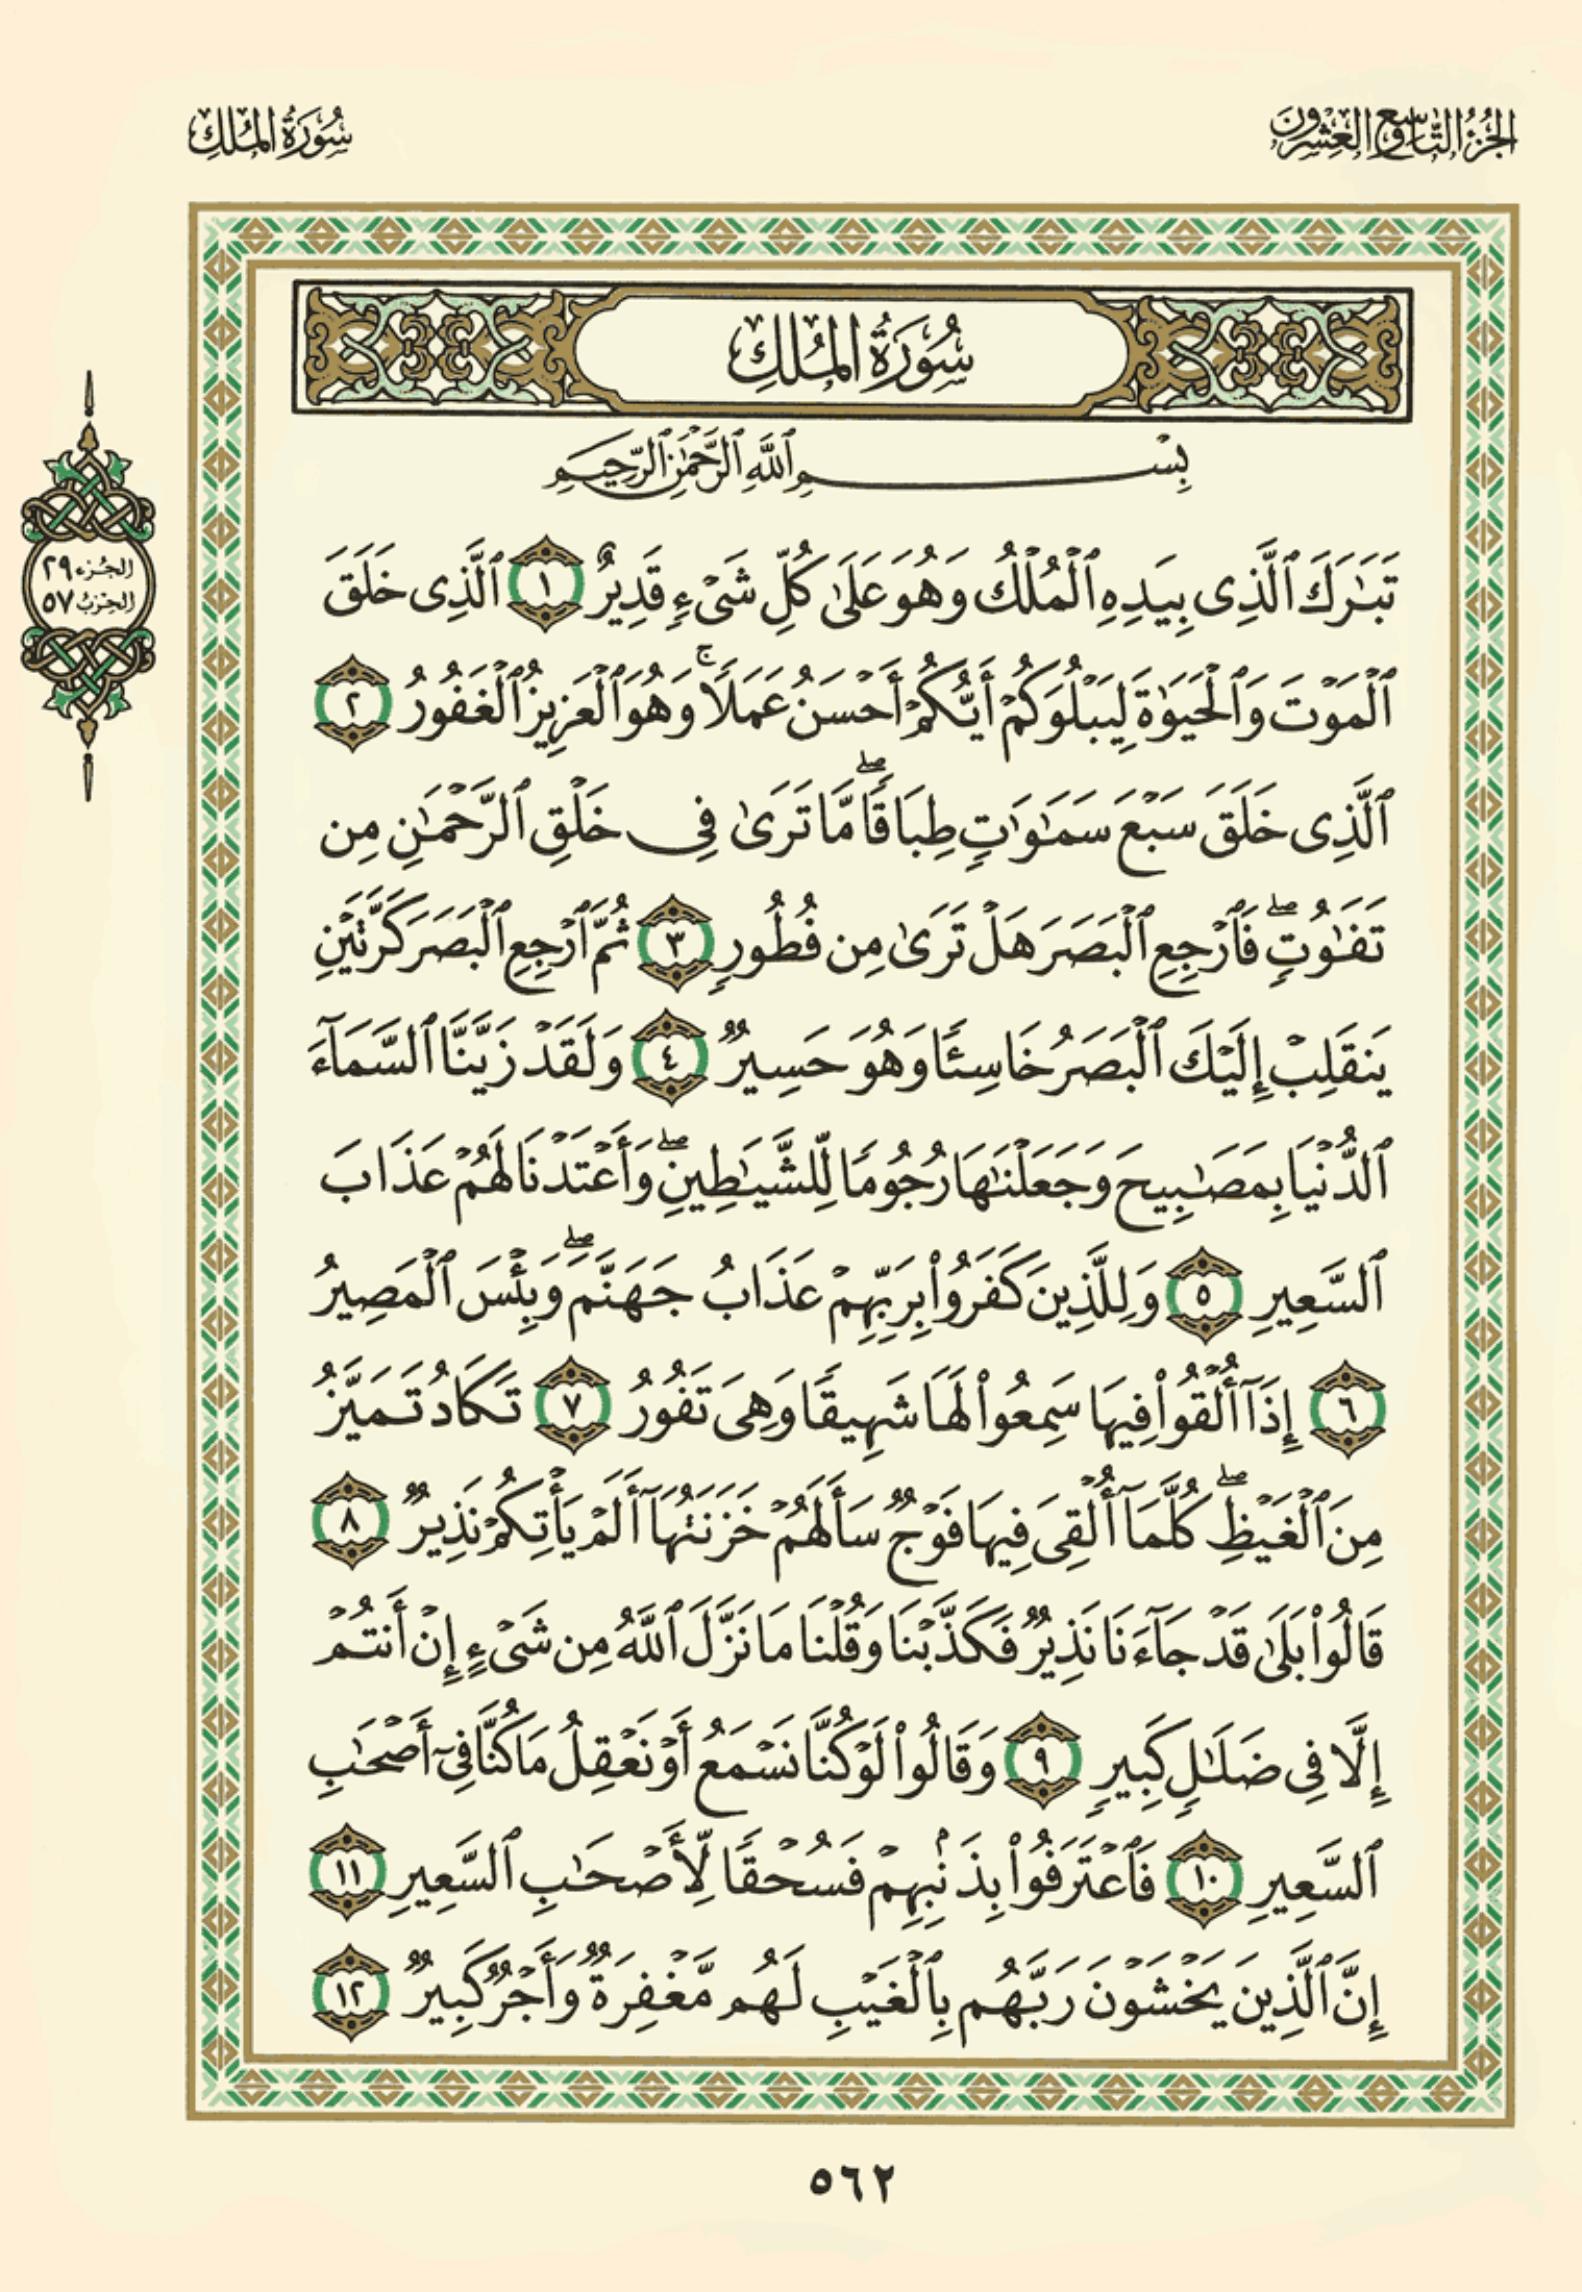 الجزء التاسع والعشرون
سُورَةُ المُلكِ
سُورَةُ المُلكِ
بِسْمِ ٱللَّهِ ٱلرَّحْمَٰنِ ٱلرَّحِيمِ
الجزء ٢٩
الحزب ٥٧
تَبَٰرَكَ ٱلَّذِى بِيَدِهِ ٱلْمُلْكُ وَهُوَ عَلَىٰ كُلِّ شَىْءٍ قَدِيرٌ ١ ٱلَّذِى خَلَقَ
ٱلْمَوْتَ وَٱلْحَيَوٰةَ لِيَبْلُوَكُمْ أَيُّكُمْ أَحْسَنُ عَمَلًا ۚ وَهُوَ ٱلْعَزِيزُ ٱلْغَفُورُ ٢
ٱلَّذِى خَلَقَ سَبْعَ سَمَٰوَٰتٍ طِبَاقًا ۖ مَّا تَرَىٰ فِى خَلْقِ ٱلرَّحْمَٰنِ مِن
تَفَٰوُتٍ ۖ فَٱرْجِعِ ٱلْبَصَرَ هَلْ تَرَىٰ مِن فُطُورٍ ٣ ثُمَّ ٱرْجِعِ ٱلْبَصَرَ كَرَّتَيْنِ
يَنقَلِبْ إِلَيْكَ ٱلْبَصَرُ خَاسِئًا وَهُوَ حَسِيرٌ ٤ وَلَقَدْ زَيَّنَّا ٱلسَّمَآءَ
ٱلدُّنْيَا بِمَصَٰبِيحَ وَجَعَلْنَٰهَا رُجُومًا لِّلشَّيَٰطِينِ ۖ وَأَعْتَدْنَا لَهُمْ عَذَابَ
ٱلسَّعِيرِ ٥ وَلِلَّذِينَ كَفَرُوا۟ بِرَبِّهِمْ عَذَابُ جَهَنَّمَ ۖ وَبِئْسَ ٱلْمَصِيرُ
٦ إِذَآ أُلْقُوا۟ فِيهَا سَمِعُوا۟ لَهَا شَهِيقًا وَهِىَ تَفُورُ ٧ تَكَادُ تَمَيَّزُ
مِنَ ٱلْغَيْظِ ۖ كُلَّمَآ أُلْقِىَ فِيهَا فَوْجٌ سَأَلَهُمْ خَزَنَتُهَآ أَلَمْ يَأْتِكُمْ نَذِيرٌ ٨
قَالُوا۟ بَلَىٰ قَدْ جَآءَنَا نَذِيرٌ فَكَذَّبْنَا وَقُلْنَا مَا نَزَّلَ ٱللَّهُ مِن شَىْءٍ إِنْ أَنتُمْ
إِلَّا فِى ضَلَٰلٍ كَبِيرٍ ٩ وَقَالُوا۟ لَوْ كُنَّا نَسْمَعُ أَوْ نَعْقِلُ مَا كُنَّا فِىٓ أَصْحَٰبِ
ٱلسَّعِيرِ ١٠ فَٱعْتَرَفُوا۟ بِذَنۢبِهِمْ فَسُحْقًا لِّأَصْحَٰبِ ٱلسَّعِيرِ ١١
إِنَّ ٱلَّذِينَ يَخْشَوْنَ رَبَّهُم بِٱلْغَيْبِ لَهُم مَّغْفِرَةٌ وَأَجْرٌ كَبِيرٌ ١٢
٥٦٢